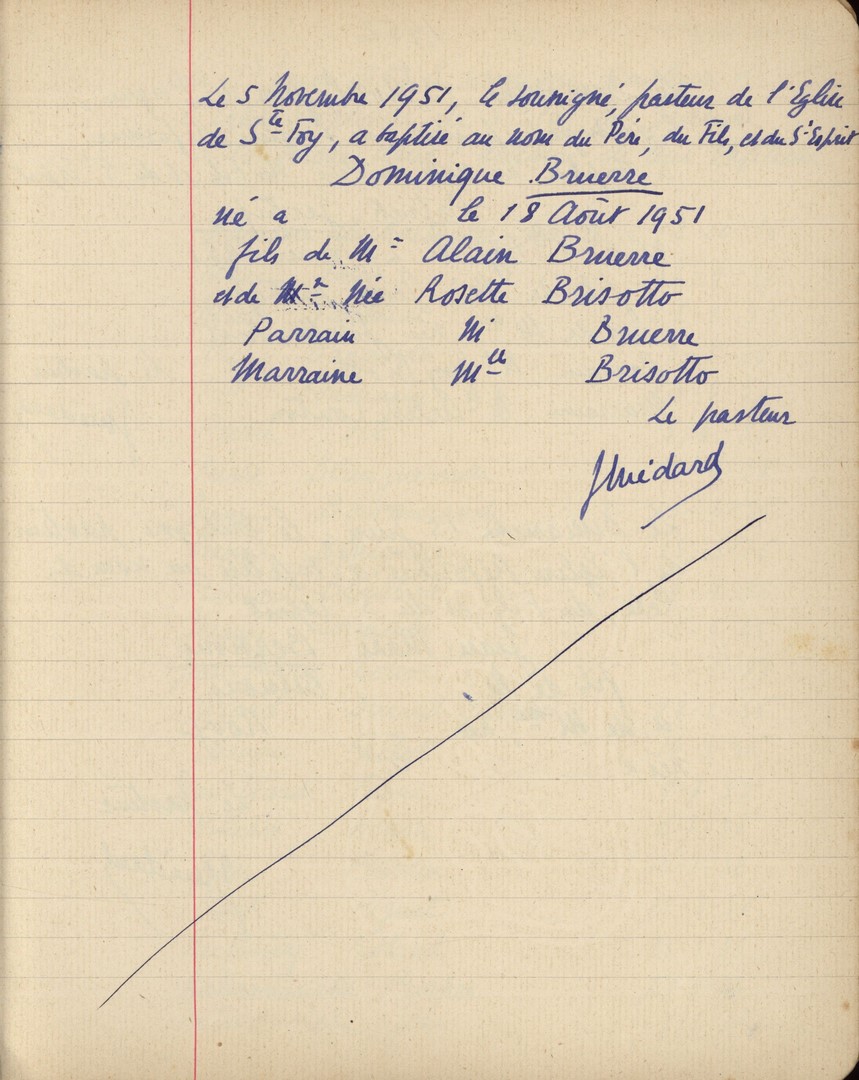 Le 5 Novembre 1951, le soussigné, pasteur de l'Eglise
de Ste Foy, a baptisé au nom du Père, du Fils, et du St Esprit
Dominique Bruerre
né a le 18 Août 1951
fils de Mr Alain Bruerre
et de née Rosette Brisotto
Parrain M Bruerre
Marraine Mlle Brisotto
Le pasteur